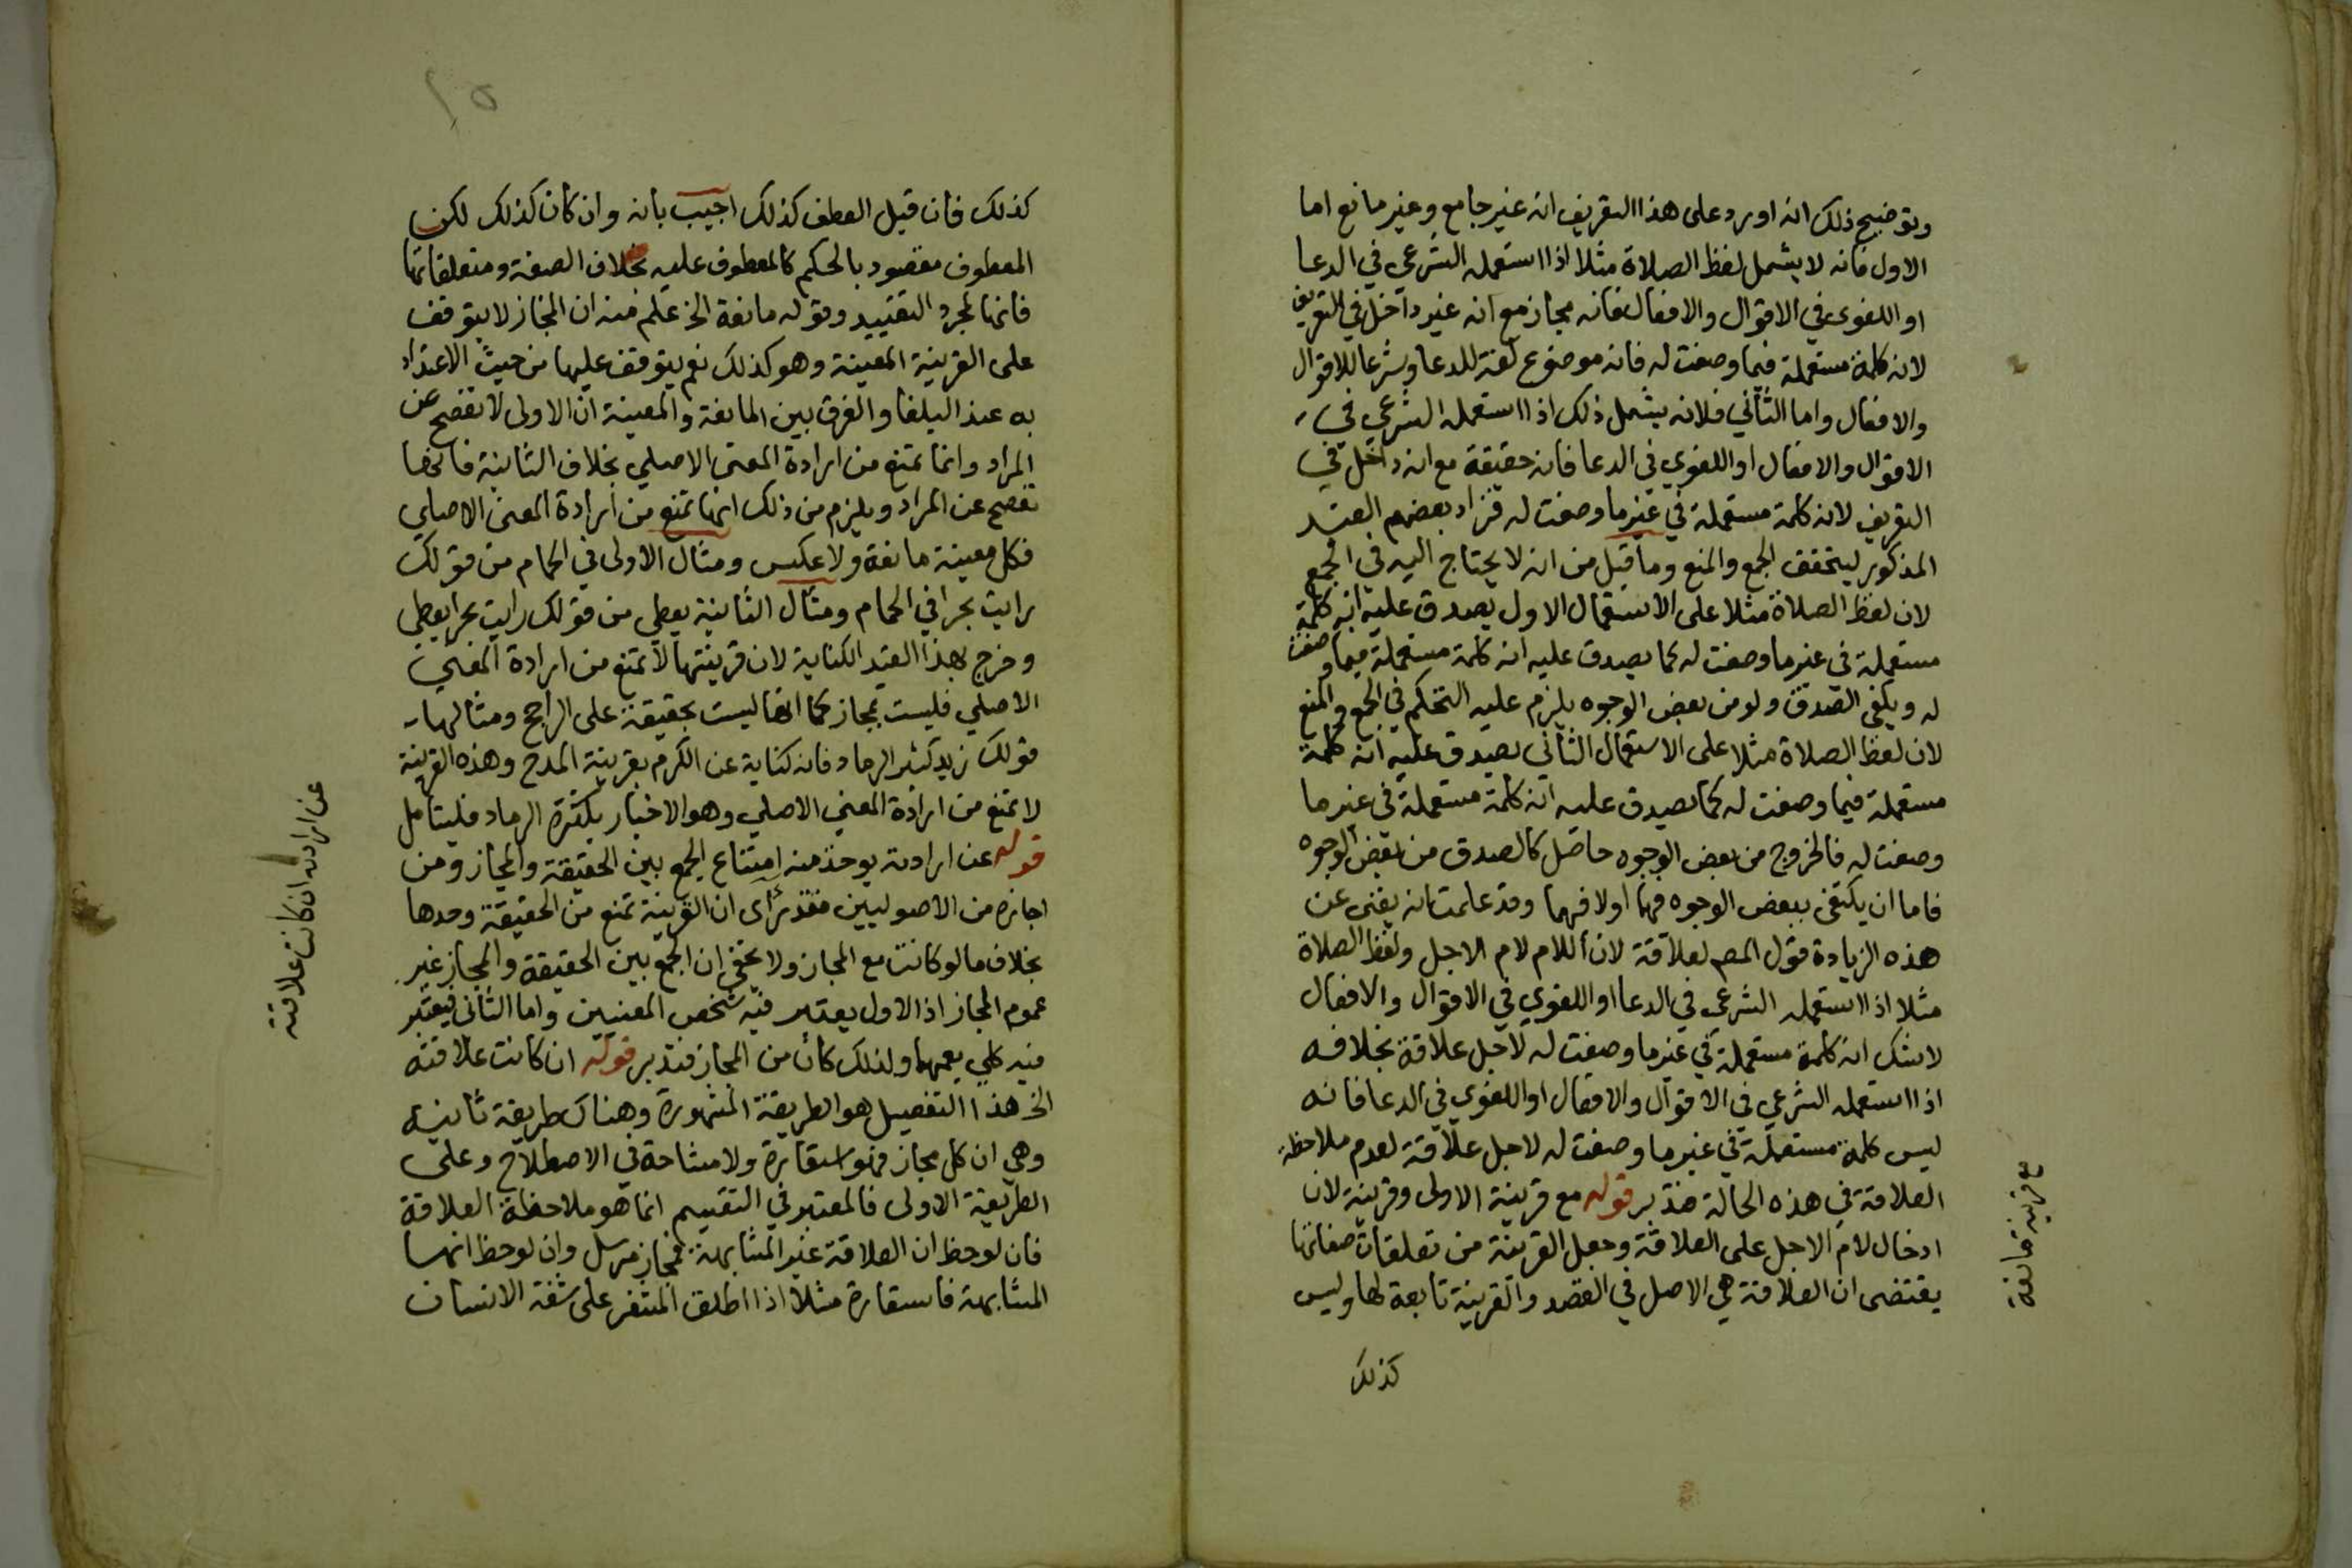 وتوضيح ذلك انه اورد على هذا التعريف انه غير جامع وغير مانع اما
الاول فانه لا يشمل لفظ الصلاة مثلا اذا استعمله الشرعي في الدعا
او اللغوى في الاقوال والافعال فانه مجاز مع انه غير داخل في التعريف
لانه كلمة مستعملة فيما وضعت له فانه موضوع لغة للدعا وشرعا للاقوال
والافعال واما الثاني فلانه يشمل ذلك اذا استعمله الشرعي في
الاقوال والافعال او اللغوي في الدعا فانه حقيقة مع انه داخل في
التعريف لانه كلمة مستعملة في غير ما وضعت له فزاد بعضهم القيد
المذكور ليتحقق الجمع والمنع وما قيل من انه لا يحتاج اليه في الجمع
لان لفظ الصلاة مثلا على الاستعمال الاول يصدق عليه انه كلمة
مستعملة في غير ما وضعت له كما يصدق عليه انه كلمة مستعملة فيما وضعت
له ويكفى الصدق ولو من بعض الوجوه يلزم عليه التحكم في الجمع والمنع
لان لفظ الصلاة مثلا على الاستعمال الثاني يصدق عليه انه كلمة
مستعملة فيما وضعت له كما يصدق عليه انه كلمة مستعملة في غير ما
وضعت له فالخروج من بعض الوجوه حاصل كالصدق من بعض الوجوه
فاما ان يكتفى ببعض الوجوه فيهما اولا فيهما وقد علمت انه يغنى عن
هذه الزيادة قول المصـ لعلاقة لان اللام لام الاجل ولفظ الصلاة
مثلا اذا استعمله الشرعي في الدعا او اللغوي في الاقوال والافعال
لاشك انه كلمة مستعملة في غير ما وضعت له لاجل علاقة بخلافه
اذا استعمله الشرعي في الاقوال والافعال او اللغوي في الدعا فانه
ليس كلمة مستعملة في غير ما وضعت له لاجل علاقة لعدم ملاحظة
العلاقة في هذه الحالة فتدبر قوله مع قرينة الاولى وقرينة لان
ادخال لام الاجل على العلاقة وجعل القرينة من تعلقات صفاتها
يقتضى ان العلاقة هي الاصل في القصد والقرينة تابعة لها وليس
كذلك
مع قرينة مانعة
كذلك فان قيل العطف كذلك اجيب بانه وان كان كذلك لكن
المعطوف مقصود بالحكم كالمعطوف عليه بخلاف الصفة ومتعلقاتها
فانها لمجرد التقييد وقوله مانعة الخ علم منه ان المجاز لا يتوقف
على القرينة المعينة وهو كذلك نعم يتوقف عليها من حيث الاعتداد
به عند البلغا والفرق بين المانعة والمعينة ان الاولى لا تفصح عن
المراد وانما تمنع من ارادة المعنى الاصلي بخلاف الثانية فانها
تفصح عن المراد ويلزم من ذلك انها تمنع من ارادة المعنى الاصلي
فكل معينة مانعة ولا عكس ومثال الاولى في الحمام من قولك
رايت بحرا في الحمام ومثال الثانية يعطي من قولك رايت بحرا يعطي
وخرج بهذا القيد الكناية لان قرينتها لا تمنع من ارادة المعنى
الاصلي فليست بمجاز كما انها ليست بحقيقة على الراجح ومثالها
قولك زيد كثير الرماد فانه كناية عن الكرم بقرينة المدح وهذه القرينة
لا تمنع من ارادة المعنى الاصلي وهو الاخبار بكثرة الرماد فليتامل
قوله عن ارادته يوخذ منه امتناع الجمع بين الحقيقة والمجاز ومن
اجازه من الاصوليين فقد راى ان القرينة تمنع من الحقيقة وحدها
بخلاف ما لو كانت مع المجاز ولا يخفى ان الجمع بين الحقيقة والمجاز غير
عموم المجاز اذ الاول يعتبر فيه شخص المعنيين واما الثاني فيعتبر
فيه كلي يعمهما ولذلك كان من المجاز فتدبر قوله ان كانت علاقته
الخ هذا التفصيل هو الطريقة المشهورة وهناك طريقة ثانية
وهي ان كل مجاز فهو استعارة ولا مشاحة في الاصطلاح وعلى
الطريقة الاولى فالمعتبر في التقسيم انما هو ملاحظة العلاقة
فان لوحظ ان العلاقة غير المشابهة فمجاز مرسل وان لوحظ انها
المشابهة فاستعارة مثلا اذا اطلق المشفر على شفة الانسان
عن ارادته ان كانت علاقته